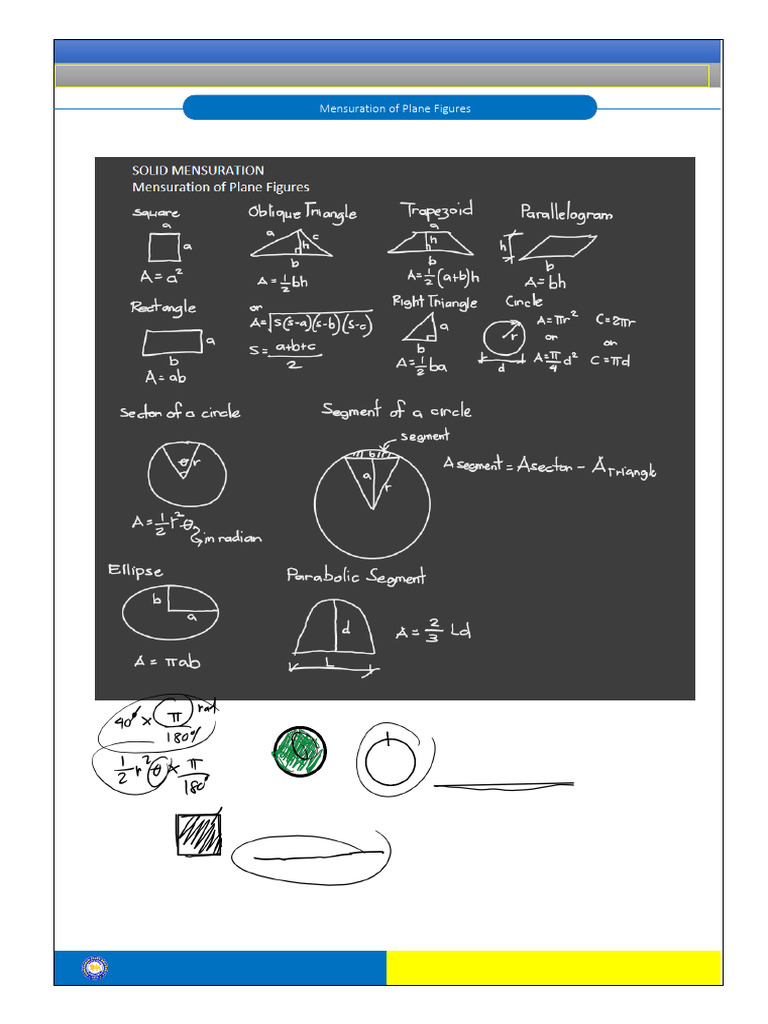 Mensuration of Plane Figures
SOLID MENSURATION
Mensuration of Plane Figures
Square
a
a
A = a²
Oblique Triangle
a
c
h
b
A = 1/2 bh
or
A = √s(s-a)(s-b)(s-c)
S = a+b+c / 2
Trapezoid
a
h
b
A = 1/2 (a+b)h
Parallelogram
h
b
A = bh
Rectangle
a
b
A = ab
Right Triangle
a
b
A = 1/2 ba
Circle
r
d
A = πr²
or
A = π/4 d²
C = 2πr
or
C = πd
Sector of a circle
θ r
A = 1/2 r² θ
in radian
Segment of a circle
segment
b
a
r
A segment = A sector - A Triangle
Ellipse
b
a
A = πab
Parabolic Segment
d
L
A = 2/3 Ld
40° × π/180° rad
1/2 r² θ × π/180°